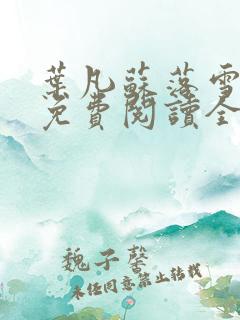 葉凡蘇落雪
免費閱讀全
魏子馨
未經同意禁止轉載